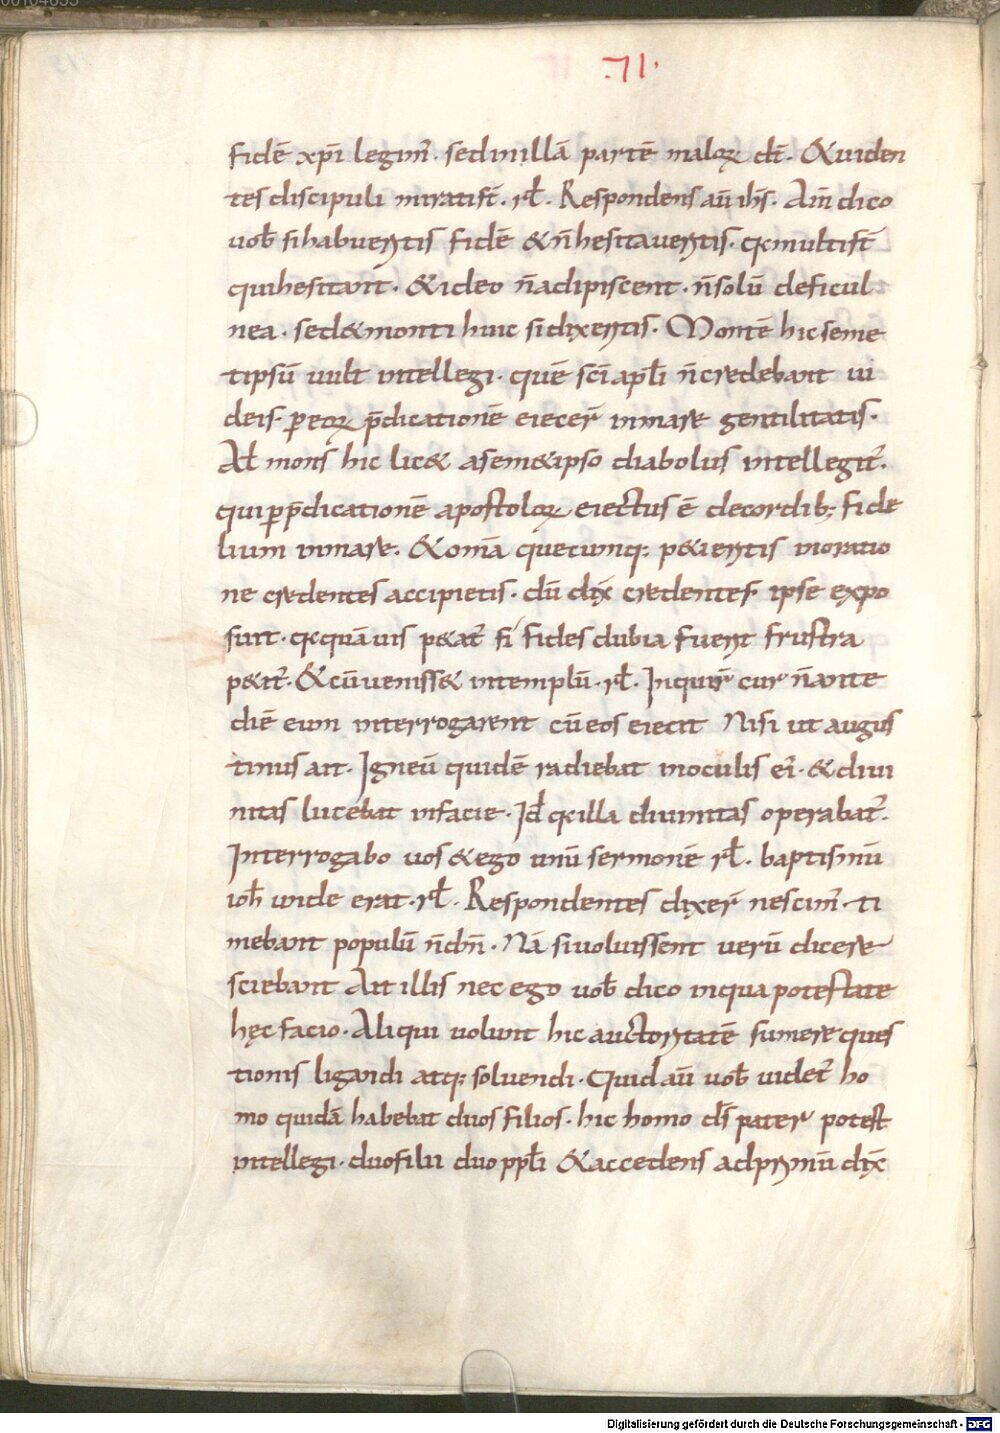 .71.
fidē xp̄i legim̄. sed in illā partē malorꝝ dt̄. & uiden
tes discipuli mirati st̄. rł. Respondens aū ihs̄. Am̄ dico
uob̄ si habueritis fidē & n̄ hesitaueritis. qꝛ multi st̄
qui hesitant. & ideo n̄ adipiscent. n̄ solū de ficul
nea. sed & monti huic si dixeritis. Montē hic seme
tipsū uult intellegi. quē sc̄i apłi n̄ credebant iu
deis. ꝑ eorꝝ p̄dicationē eiecer̄ in mare gentilitatis.
Ał mons hic lic& a sem&ipso diabolus intellegit̄.
qui ꝑ p̄dicationē apostolorꝝ eiectus ē de cordib; fide
lium in mare. & om̄a quecumq; p&ieritis in oratio
ne credentes accipietis. dū dix̄ credentes ipse expo
suit. qꝛ quāuis p&at̄ si fides dubia fuerit frustra
p&it̄. & cū ueniss& in templū. rł. Inquir̄ cur n̄ ante
diē eum interrogarent cū eos eiecit Nisi ut augus
tinus ait. Igneū quidē radiebat in oculis ei᷒. & diui
nitas lucebat in facie. Id̄ qꝛ illa diuinitas operabat̄.
Interrogabo uos & ego unū sermonē rł. baptismū
ioh̄ unde erat. rł. Respondentes dixer̄ nescim̄. ti
mebant populū n̄ dm̄. Nā si uoluissent uerū dicere
sciebant Ait illis nec ego uob̄ dico in qua potestate
hęc facio. Aliqui uolunt hic auctoritatē sumere ques
tionis ligandi atq; soluendi. Quid aū uob̄ uidet̄ ho
mo quidā habebat duos filios. hic homo ds̄ pater potest
intellegi. duo filii duo ppłi & accedens ad primū dix̄
Digitalisierung gefördert durch die Deutsche Forschungsgemeinschaft - DFG